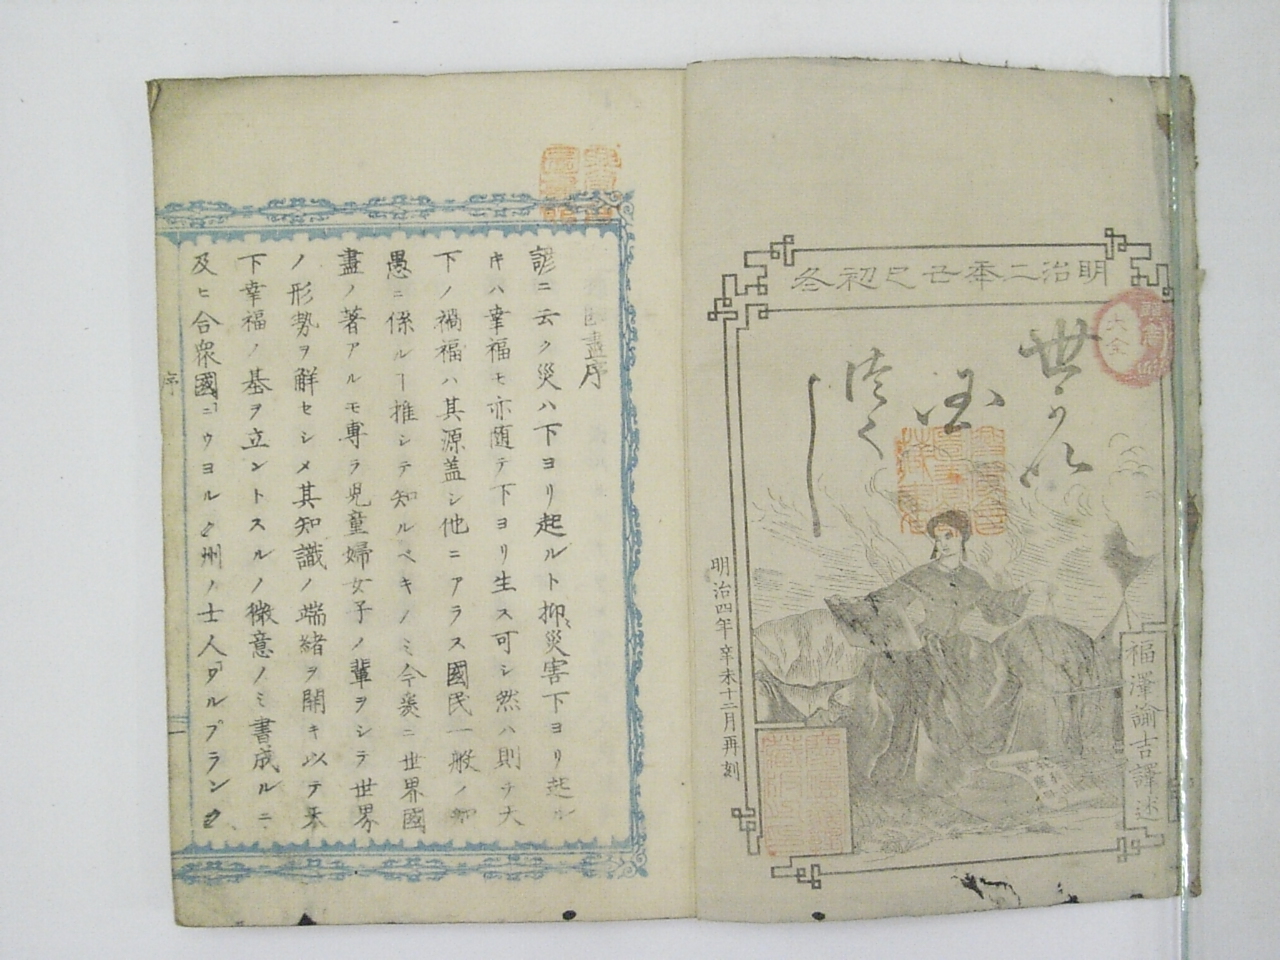 明治二年己巳初冬
世界
国
尽
一
福澤諭吉譯述
明治四年辛未十二月再刻
大全
畫序
諺ニ云ク災ハ下ヨリ起ルト抑災害下ヨリ起ル
キハ幸福モ亦随テ下ヨリ生ス可シ然ハ則チ天
下ノ禍福ハ其源蓋シ他ニアラス國民一般ノ知
愚ニ係ルヿ推シテ知ルベキノミ今爰ニ世界國
盡ノ著アルモ専ラ児童婦女子ノ輩ヲシテ世界
ノ形勢ヲ解セシメ其知識ノ端緒ヲ開キ以テ天
下幸福ノ基ヲ立ントスルノ微意ノミ書成ルニ
及ヒ合衆國ニウヨルク州ノ士人アルブランク
序